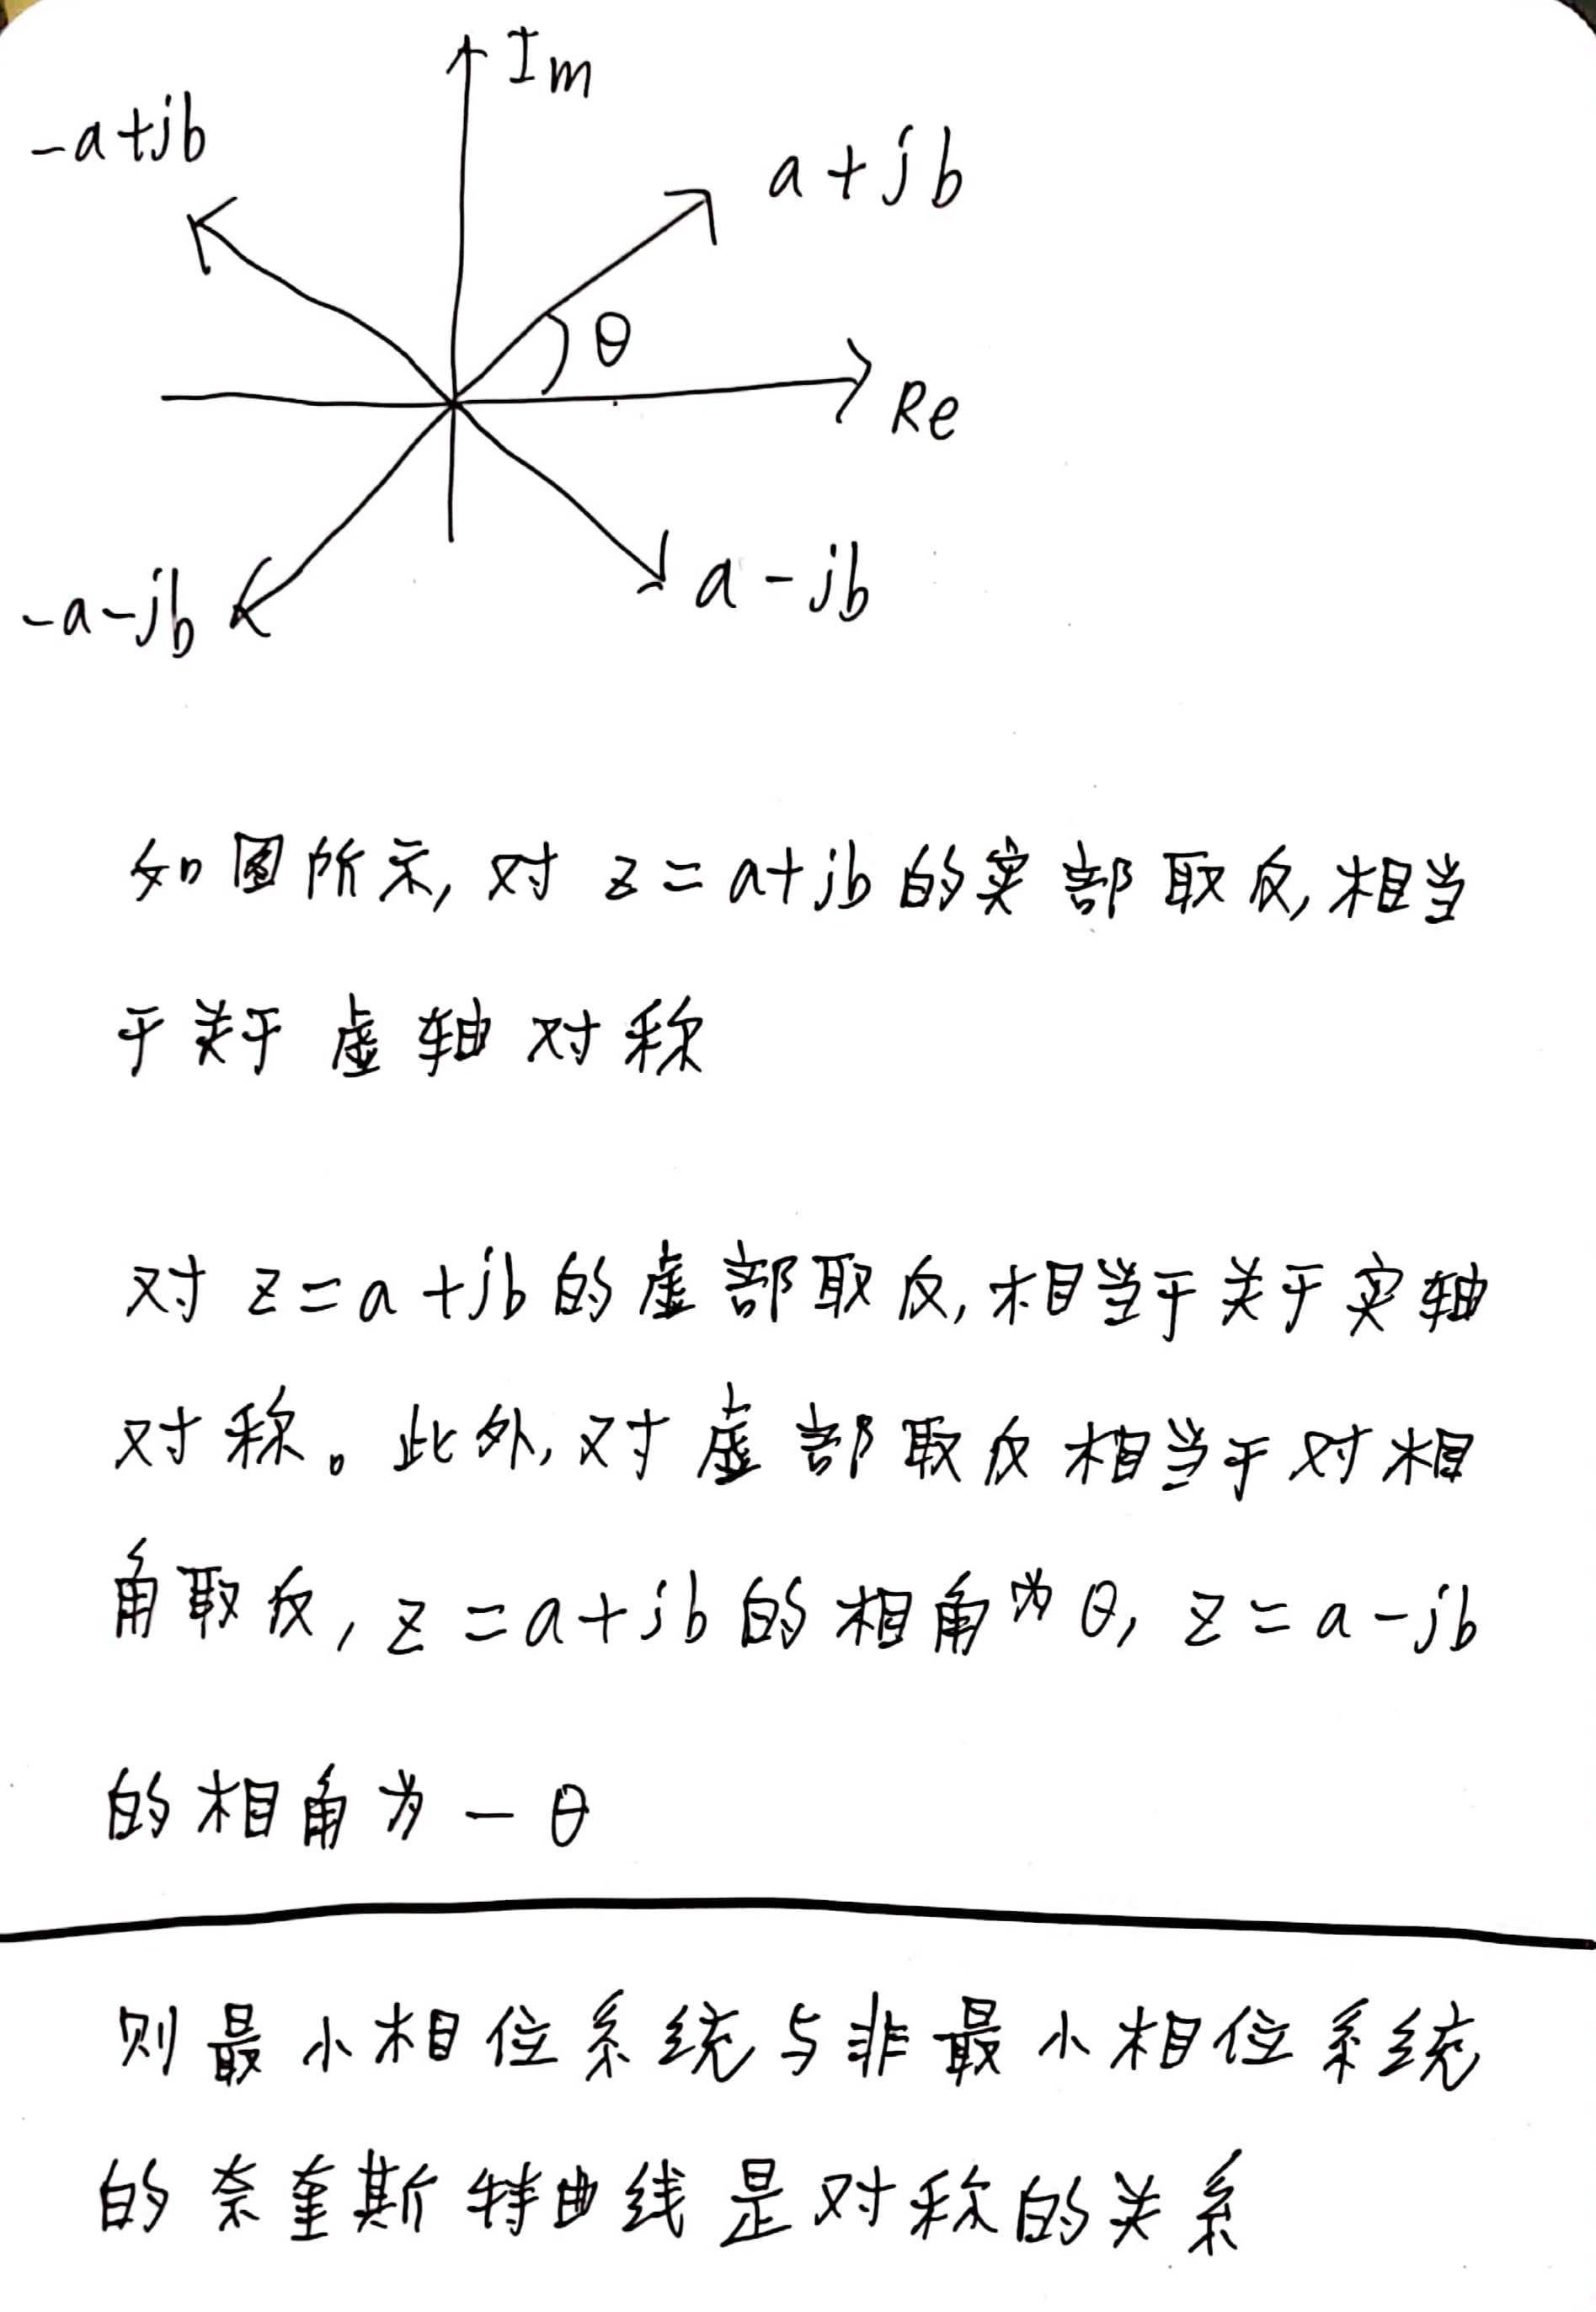 Im
-a+jb
a+jb
θ
Re
-a-jb
a-jb
如图所示,对z=a+jb的实部取反,相当
于关于虚轴对称
对z=a+jb的虚部取反,相当于关于实轴
对称。此外,对虚部取反相当于对相
角取反,z=a+jb的相角为θ,z=a-jb
的相角为-θ
则最小相位系统与非最小相位系统
的奈奎斯特曲线是对称的关系